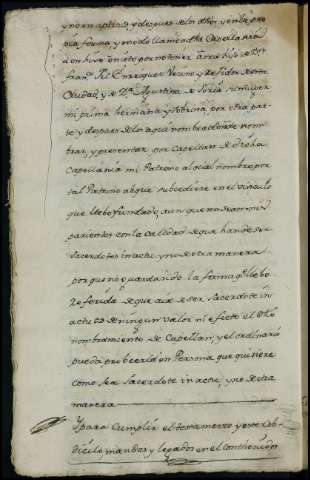 y no en aptitud, y despues de los dhos, y en la pro
pia forma y modo llamo a dha Capellania
Franco Gil Enrriquez Vezino y Rexidor de esta
Ciudad, y de Da Agustina de Soria su muger
mi prima hermana y sobrina, por otra par
te y despues de los aqui nombrados ha de nom
brar, y presentar por Capellan de dha
Capellania mi Patrono al qual nombro por
tal Patrono al que subcediere en el vinculo
que llebo fundado, aunque no sean mis
parientes con la calidad de que han de ser
sacerdotes in actu y no de otra manera
porque no guardando la forma q llebo
referida de que aia de ser sacerdote in
actu es de ningun valor ni efecto el dho
nombramiento de Capellan, y el ordinario
pueda probeerla en Persona que quisiere
como sea sacerdote in actu, y no de otra
manera
Y para cumplir el testamento y este cob
dicilo, mandas y legados en el contenidos